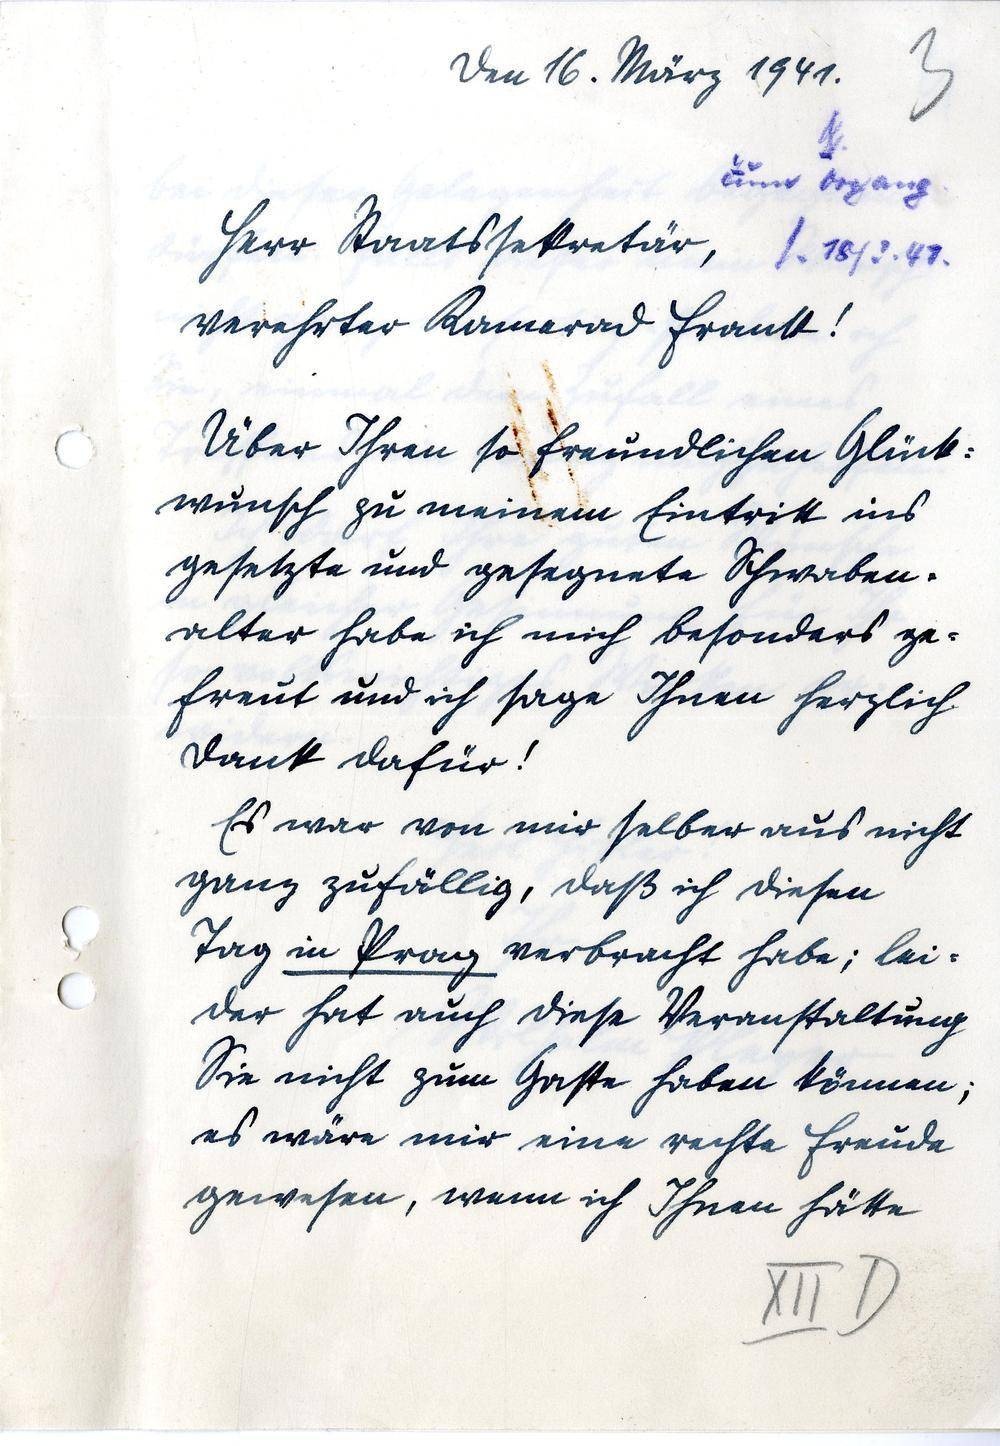 Den 16. März 1941.
3
Zum Vorgang.
18/3.41.
Herr Staatssekretär,
verehrter Kamerad Frank!
Über Ihren so freundlichen Glück=
wunsch zu meinem Eintritt ins
gesetzte und gesegnete Schwaben=
alter habe ich mich besonders ge=
freut und ich sage Ihnen herzlich
Dank dafür!
Es war von mir selber aus nicht
ganz zufällig, daß ich diesen
Tag in Prag verbracht habe; lei=
der hat auch diese Veranstaltung
Sie nicht zum Gaste haben können;
es wäre mir eine rechte Freude
gewesen, wenn ich Ihnen hätte
XII D